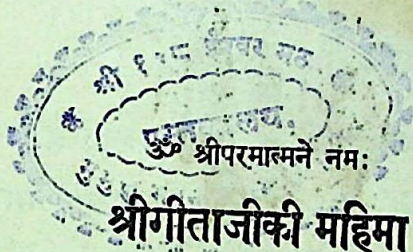 श्री १०८
ॐ श्रीपरमात्मने नमः
श्रीगीताजीकी महिमा